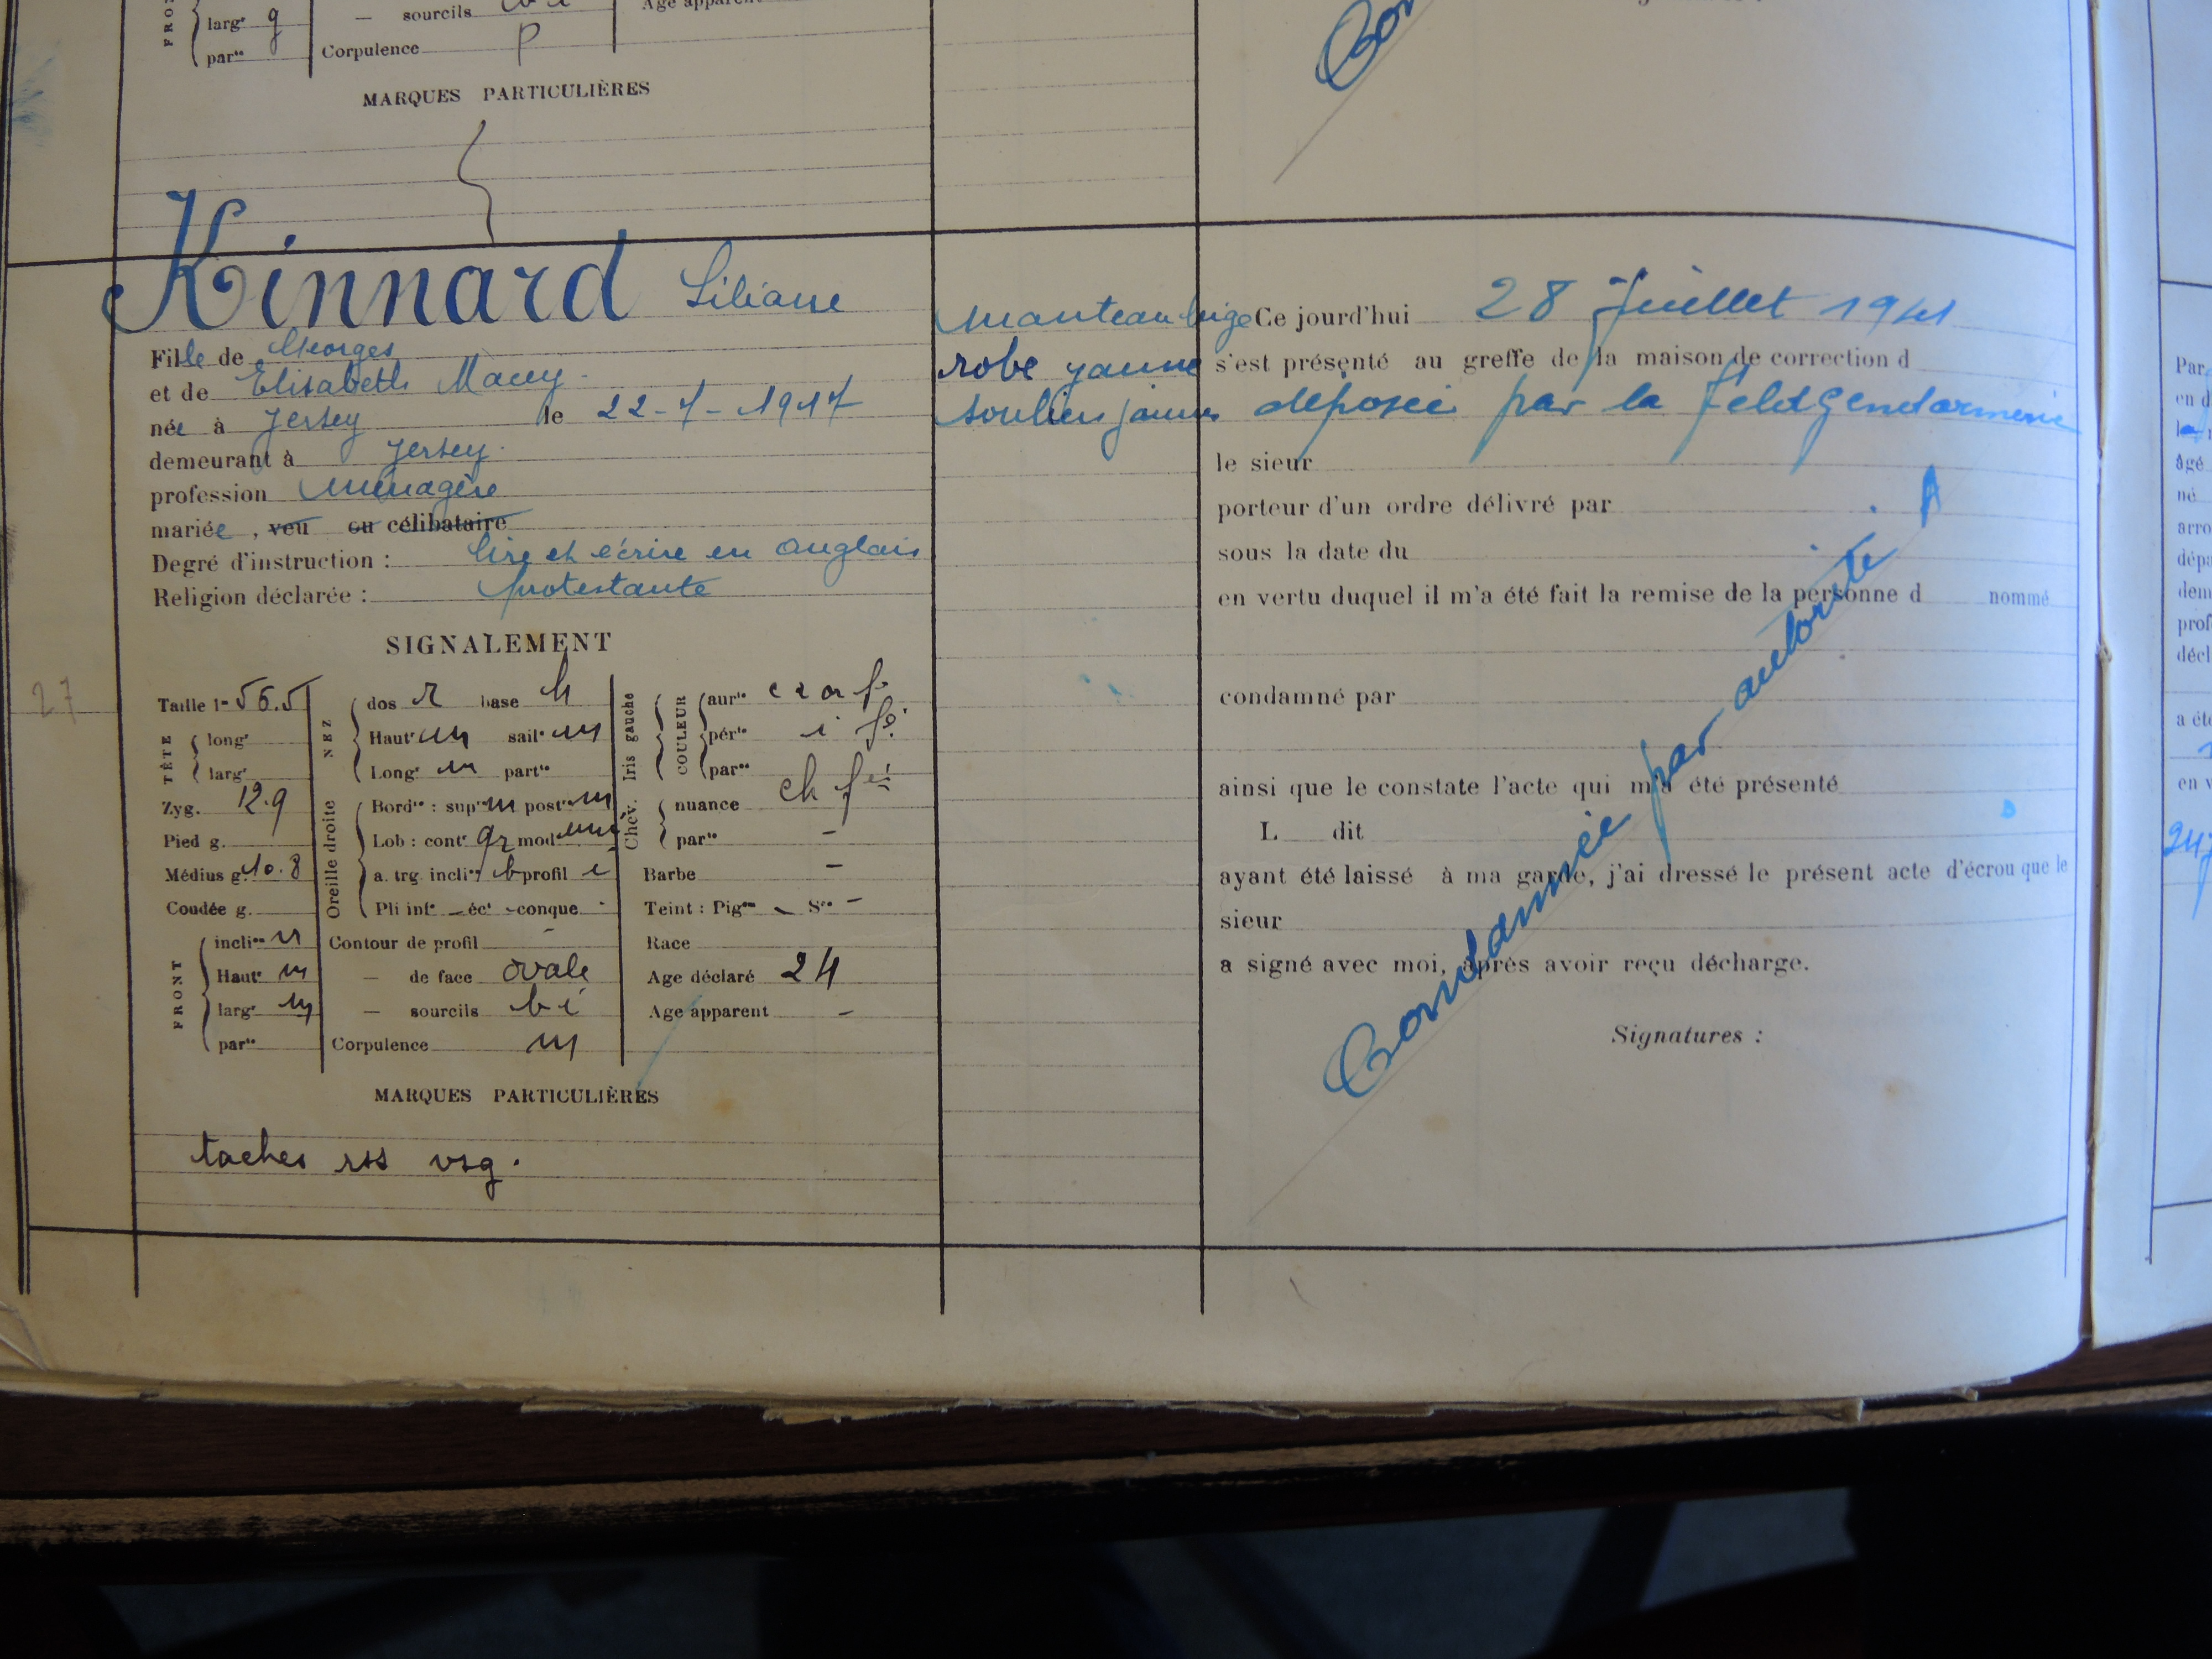 FRO
larg^r g
par^tés
— sourcils
Corpulence p
Age apparent
MARQUES PARTICULIÈRES
Kinnard Liliane
Fille de Georges
et de Elisabeth
née à Jersey le 22-7-1917
demeurant à Jersey
profession ménagère
mariée, veu ou célibataire
Degré d'instruction : lire et écrire en anglais
Religion déclarée : protestante
SIGNALEMENT
27
Taille 1^m 56.5
TÊTE
long^r
larg^r
Zyg. 12.9
Pied g.
Médius g. 10.8
Coudée g.
FRONT
incli^on
Haut^r m
larg^r m
par^tés
NEZ
dos r base h
Haut^r m sail^e m
Long^r m part^té
Oreille droite
Bord^re : sup^r m post^r m
Lob : cont^r gz mod
a. trg. incli^on b profil i
Pli inf^r – éc^t – conque -
Contour de profil -
— de face ovale
— sourcils b i
Corpulence m
Iris gauche
COULEUR
aur^le
pér^le i
par^tés
Chev.
nuance ch
par^té -
Barbe -
Teint : Pig^on - S^on -
Race
Age déclaré 24
Age apparent -
MARQUES PARTICULIÈRES
taches rss vsg.
manteau beige
robe jaune
souliers jaunes
Ce jourd'hui 28 Juillet 1941
s'est présenté au greffe de la maison de correction d
déposée par la feldgendarmerie
le sieur
porteur d'un ordre délivré par
sous la date du
en vertu duquel il m'a été fait la remise de la personne d nommé
condamné par
ainsi que le constate l'acte qui m'a été présenté
L dit
ayant été laissé à ma garde, j'ai dressé le présent acte d'écrou que le
sieur
a signé avec moi, après avoir reçu décharge.
Signatures :
Condamnée par autorité A
Par
en d
âgé
né
arro
dépa
dem
prof
décl
a été
en v